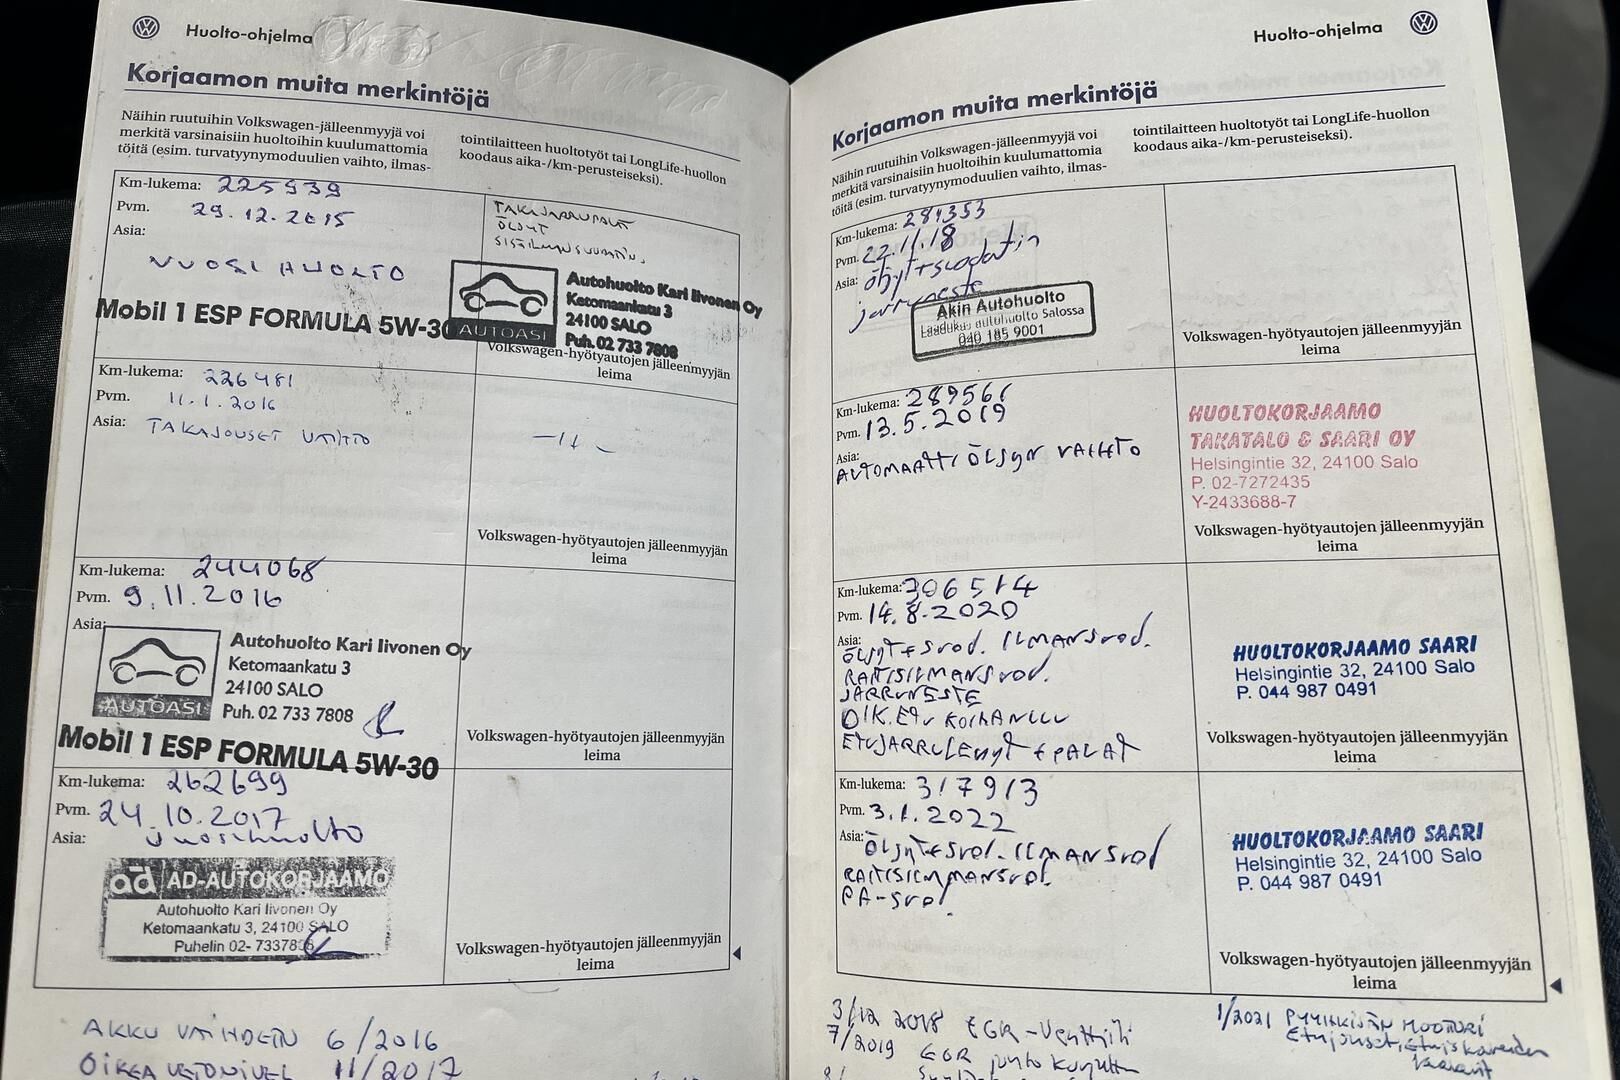 Huolto-ohjelma
Korjaamon muita merkintöjä
Näihin ruutuihin Volkswagen-jälleenmyyjä voi
merkitä varsinaisiin huoltoihin kuulumattomia
töitä (esim. turvatyynymoduulien vaihto, ilmas-
tointilaitteen huoltotyöt tai LongLife-huollon
koodaus aika-/km-perusteiseksi).
Km-lukema: 225939
Pvm. 29.12.2015
Asia:
VUOSIHUOLTO
Mobil 1 ESP FORMULA 5W-30
TAKAJARRUPALAT
ÖLJYT
SISÄILMANSUODATIN
AUTOASI
Autohuolto Kari Iivonen Oy
Ketomaankatu 3
24100 SALO
Puh. 02 733 7808
Volkswagen-hyötyautojen jälleenmyyjän
leima
Km-lukema: 226481
Pvm. 11.1.2016
Asia: TAKAJOUSET VAIHTO
-11-
Volkswagen-hyötyautojen jälleenmyyjän
leima
Km-lukema: 244068
Pvm. 9.11.2016
Asia:
AUTOASI
Autohuolto Kari Iivonen Oy
Ketomaankatu 3
24100 SALO
Puh. 02 733 7808
Mobil 1 ESP FORMULA 5W-30
Volkswagen-hyötyautojen jälleenmyyjän
leima
Km-lukema: 262699
Pvm. 24.10.2017
Asia: Vuosihuolto
ad AD-AUTOKORJAAMO
Autohuolto Kari Iivonen Oy
Ketomaankatu 3, 24100 SALO
Puhelin 02- 7337808
Volkswagen-hyötyautojen jälleenmyyjän
leima
AKKU VAIHDETTU 6/2016
OIKEA VETONIVEL 11/2017
Huolto-ohjelma
Korjaamon muita merkintöjä
Näihin ruutuihin Volkswagen-jälleenmyyjä voi
merkitä varsinaisiin huoltoihin kuulumattomia
töitä (esim. turvatyynymoduulien vaihto, ilmas-
tointilaitteen huoltotyöt tai LongLife-huollon
koodaus aika-/km-perusteiseksi).
Km-lukema: 281353
Pvm. 22.11.18
Asia: öljyt+suodatin
jarruneste
Akin Autohuolto
Laadukas autohuolto Salossa
040 185 9001
Volkswagen-hyötyautojen jälleenmyyjän
leima
Km-lukema: 289561
Pvm. 13.5.2019
Asia:
AUTOMAATTIÖLJYN VAIHTO
HUOLTOKORJAAMO
TAKATALO & SAARI OY
Helsingintie 32, 24100 Salo
P. 02-7272435
Y-2433688-7
Volkswagen-hyötyautojen jälleenmyyjän
leima
Km-lukema: 306514
Pvm. 14.8.2020
Asia:
ÖLJYT+SUOD. ILMANSUOD.
RAITISILMANSUOD.
JARRUNESTE
OIK. ETU KOIRANLUU
ETUJARRULEVYT + PALAT
HUOLTOKORJAAMO SAARI
Helsingintie 32, 24100 Salo
P. 044 987 0491
Volkswagen-hyötyautojen jälleenmyyjän
leima
Km-lukema: 317913
Pvm. 3.1.2022
Asia: ÖLJYT+SUOD. ILMANSUOD
RAITISILMANSUOD.
PA-SUOD.
HUOLTOKORJAAMO SAARI
Helsingintie 32, 24100 Salo
P. 044 987 0491
Volkswagen-hyötyautojen jälleenmyyjän
leima
3/12 2018 EGR-Venttiili
7/2019 EGR putki korjattu
1/2021 PYYHKIJÄN MOOTTORI
Etujouset, etuiskareiden
laakerit